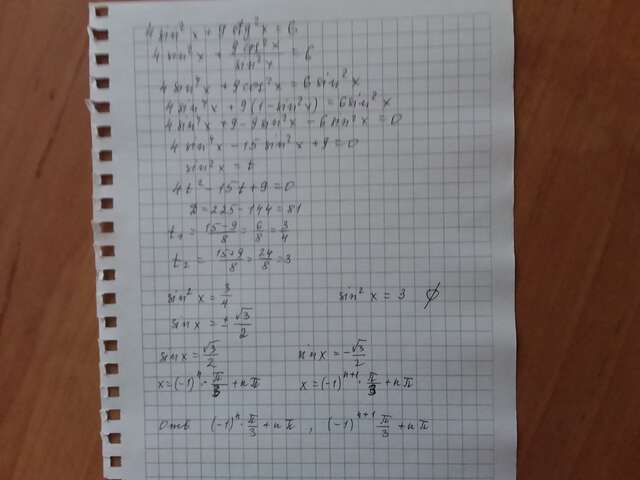 4 sin²x + 9 ctg²x = 6
4 sin²x + 9cos²x/sin²x = 6
4 sin⁴x + 9cos²x = 6 sin²x
4 sin⁴x + 9(1 - sin²x) = 6 sin²x
4 sin⁴x + 9 - 9 sin²x - 6 sin²x = 0
4 sin⁴x - 15 sin²x + 9 = 0
sin²x = t
4t² - 15t + 9 = 0
D = 225 - 144 = 81
t₁ = (15 - 9)/8 = 6/8 = 3/4
t₂ = (15 + 9)/8 = 24/8 = 3
sin²x = 3/4 sin²x = 3 ∅
sin x = ± √3/2
sin x = √3/2 sin x = - √3/2
x = (-1)ⁿ · π/3 + nπ x = (-1)ⁿ⁺¹ · π/3 + nπ
Отв (-1)ⁿ · π/3 + nπ , (-1)ⁿ⁺¹ π/3 + nπ